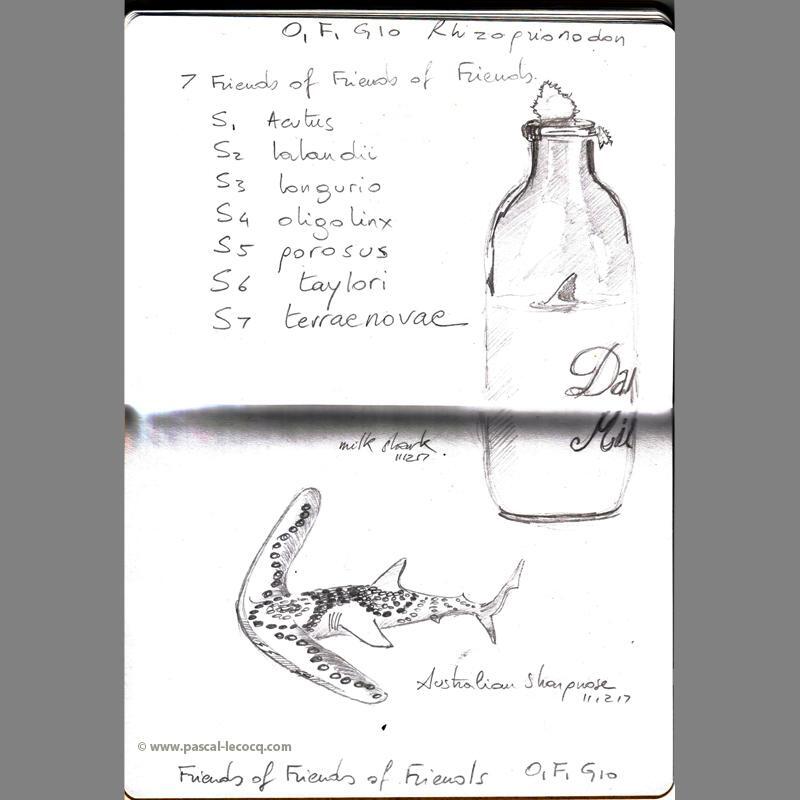 O, F, G10 Rhizoprionodon
7 Friends of Friends of Friends.
S1 Acutus
S2 lalandii
S3 longurio
S4 oligolinx
S5 porosus
S6 taylori
S7 terraenovae
Dai
Mil
milk shark.
11.12.17
Australian Sharpnose
11.12.17
© www.pascal-lecocq.com
Friends of Friends of Friends O, F, G10